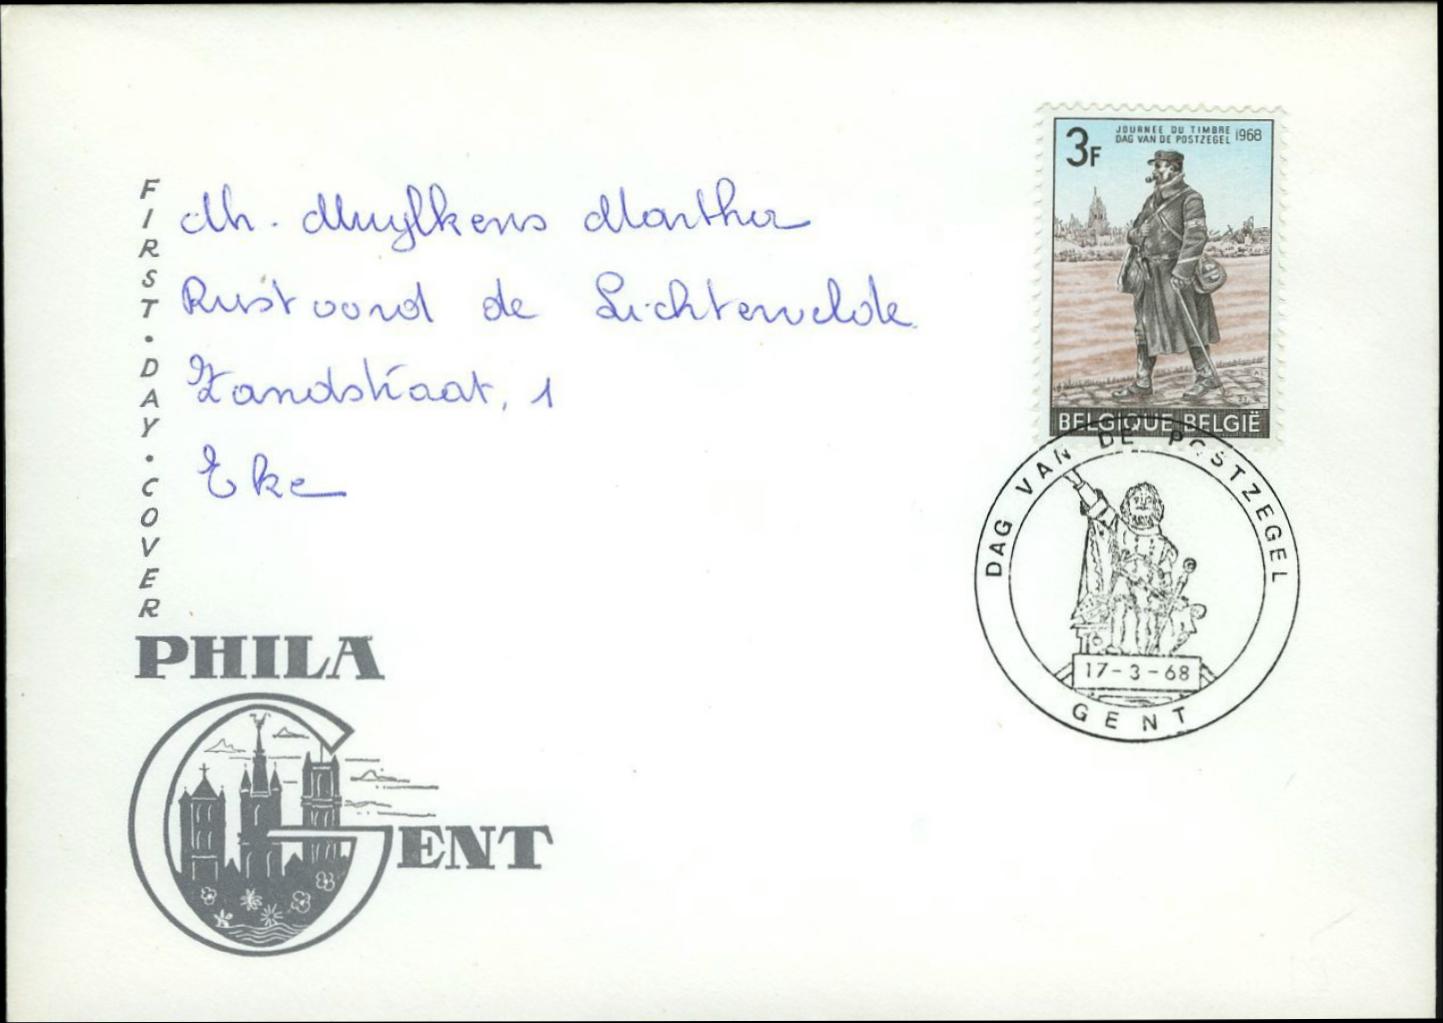 FIRST·DAY·COVER
Mh. Muylkens Martha
Rustoord de Lichtervelde
Zandstraat, 1
Eke
PHILA
GENT
3F
JOURNEE DU TIMBRE
DAG VAN DE POSTZEGEL 1968
BELGIQUE BELGIË
DAG VAN DE POSTZEGEL
17-3-68
GENT